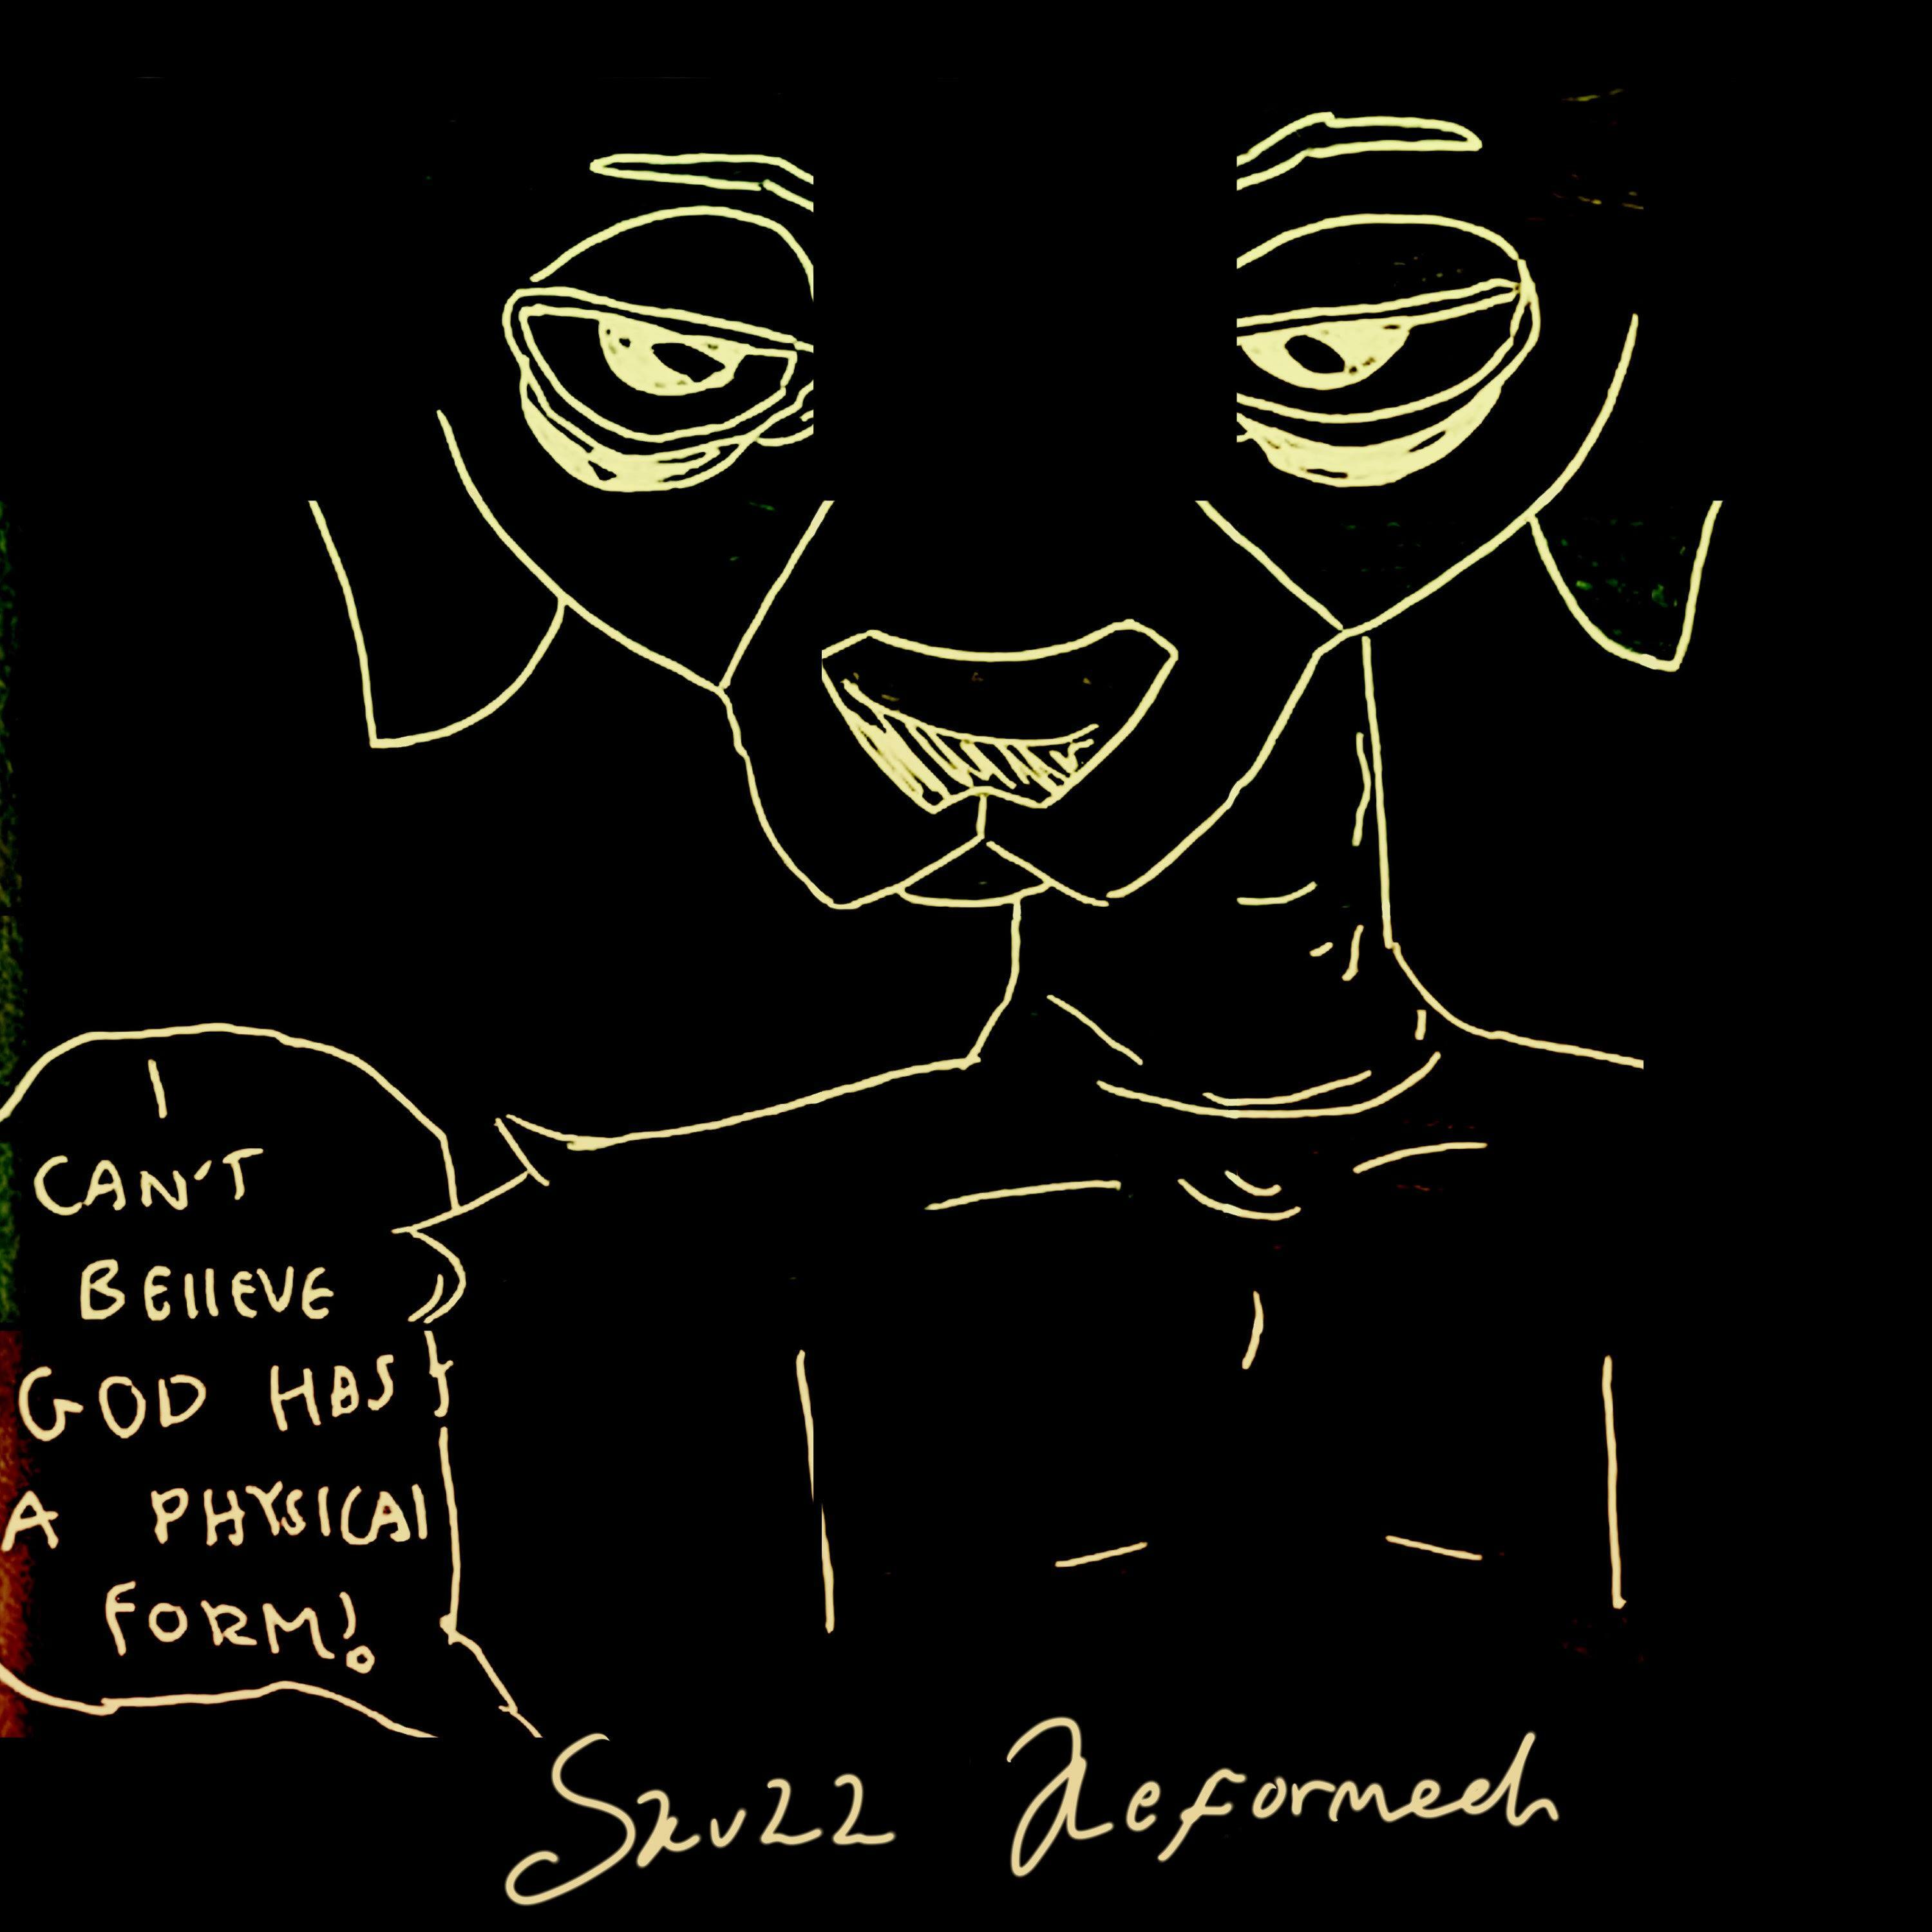 I
CAN'T
BElIEVE
GOD HAS
A PHYSICAl
FORM!
Skuzz Reformed